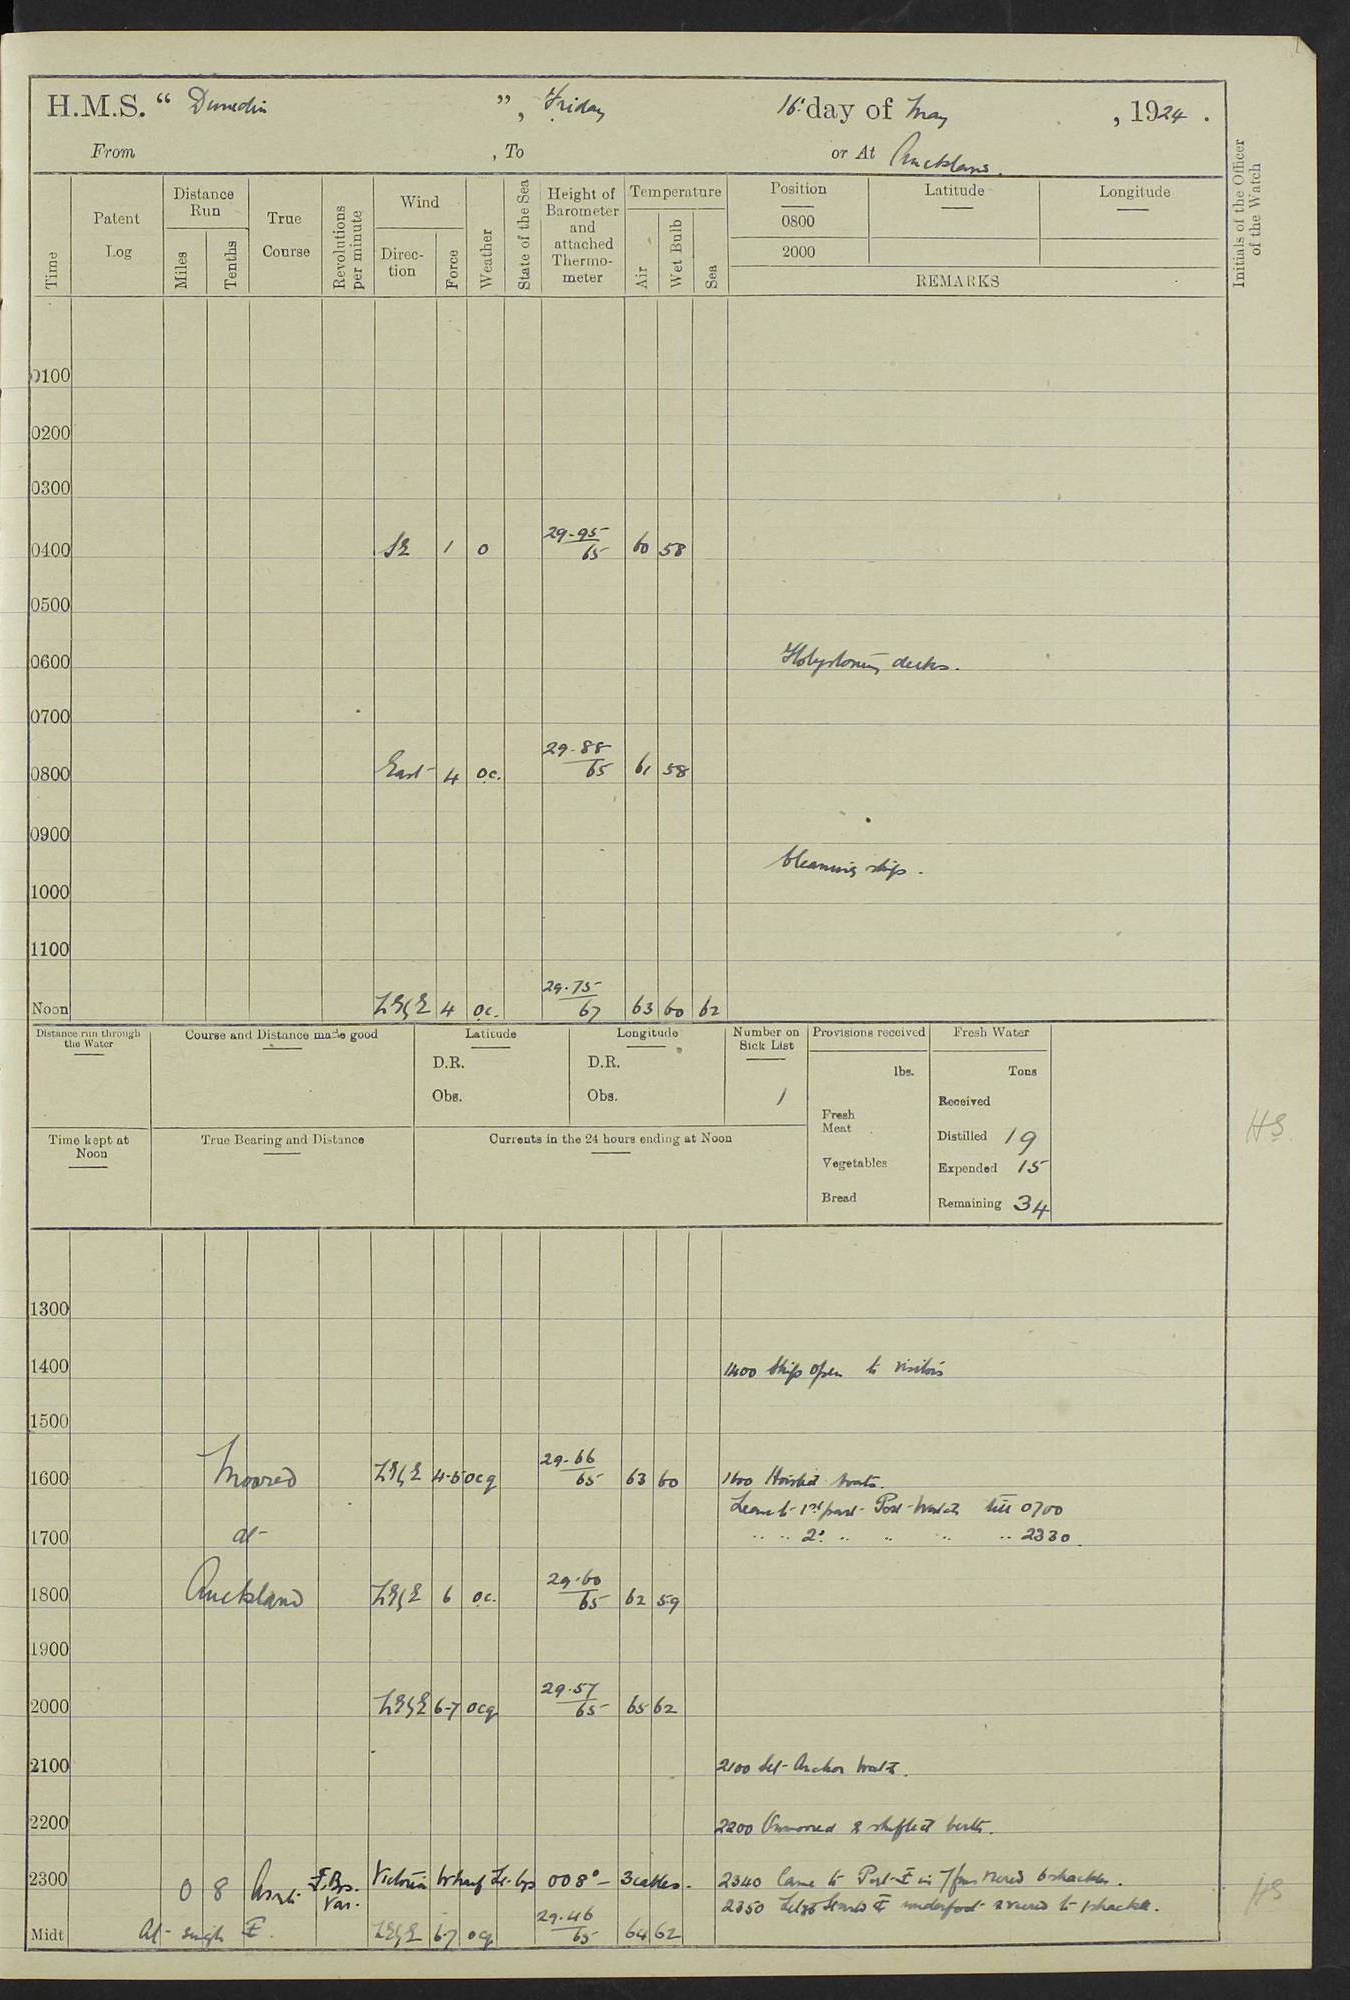 H.M.S. “ Dunedin ”, Friday 16th day of May , 1924 .
From , To or At Auckland.
Time
Patent Log
Distance Run
Miles
Tenths
True Course
Revolutions per minute
Wind
Direction
Force
Weather
State of the Sea
Height of Barometer and attached Thermometer
Temperature
Air
Wet Bulb
Sea
Position Latitude Longitude
0800
2000
REMARKS
Initials of the Officer of the Watch
0100
0200
0300
0400 SE 1 o 29-95 65 60 58
0500
0600 Holystoning decks.
0700
0800 East 4 oc. 29-88 65 61 58
0900
Cleaning ship.
1000
1100
Noon 4 oc. 29-75 67 63 60 62
Distance run through the Water
Course and Distance made good
Latitude
D.R.
Obs.
Longitude
D.R.
Obs.
Number on Sick List
1
Provisions received
lbs.
Fresh Meat
Vegetables
Bread
Fresh Water
Tons
Received
Distilled 19
Expended 15
Remaining 34
Time kept at Noon
True Bearing and Distance
Currents in the 24 hours ending at Noon
HS.
1300
1400 1400 Ship open to visitors
1500
1600 Moored 4-5 ocq 29-66 65 63 60 1600 Hoisted boats.
Leave to 1st part Port Watch till 0700
1700 at " " 2d " " " " 2330.
1800 Auckland 6 oc. 29.60 65 62 59
1900
2000 6-7 ocq 29.57 65 65 62
2100 2100 Set Anchor Watch.
2200 2200 Unmoored & shifted berth.
2300 0 8 Victoria Wharf 008° - 3 cables. 2340 Came to Port in 7 fms veered 6 shackles.
2350 Let go underfoot & veered to 1 shackle.
HS
Midt At single 6-7 ocq 29.46 65 64 62